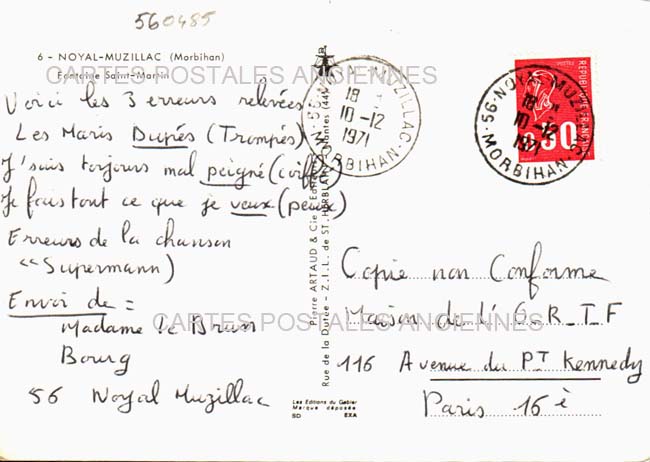 560485
6 - NOYAL-MUZILLAC (Morbihan)
CARTES POSTALES ANCIENNES
Fontaine Saint-Martin
Voici les 3 erreurs relevées
Les Maris Dupés (Trompés)
J'suis toujours mal peigné (coiffé)
Je fais tout ce que je veux (peux)
Erreurs de la chanson
"Supermann)
Envoi de =
Madame le Brun
Bourg
56 Noyal Muzillac
56 NOYAL-MUZILLAC
18
10-12
1971
MORBIHAN
Pierre ARTAUD & Cie
Rue de la Dutée - Z.I.L. de ST. HERBLAIN
Les Editions du Gabier
Marque déposée
SD EXA
REPUBLIQUE FRANÇAISE
POSTES
0,50
56 - NOYAL-MUZ
18
10-12
1971
MORBIHAN
Copie non Conforme
Maison de l'O_R_T_F
CARTES POSTALES ANCIENNES
116 Avenue du PT Kennedy
Paris 16è